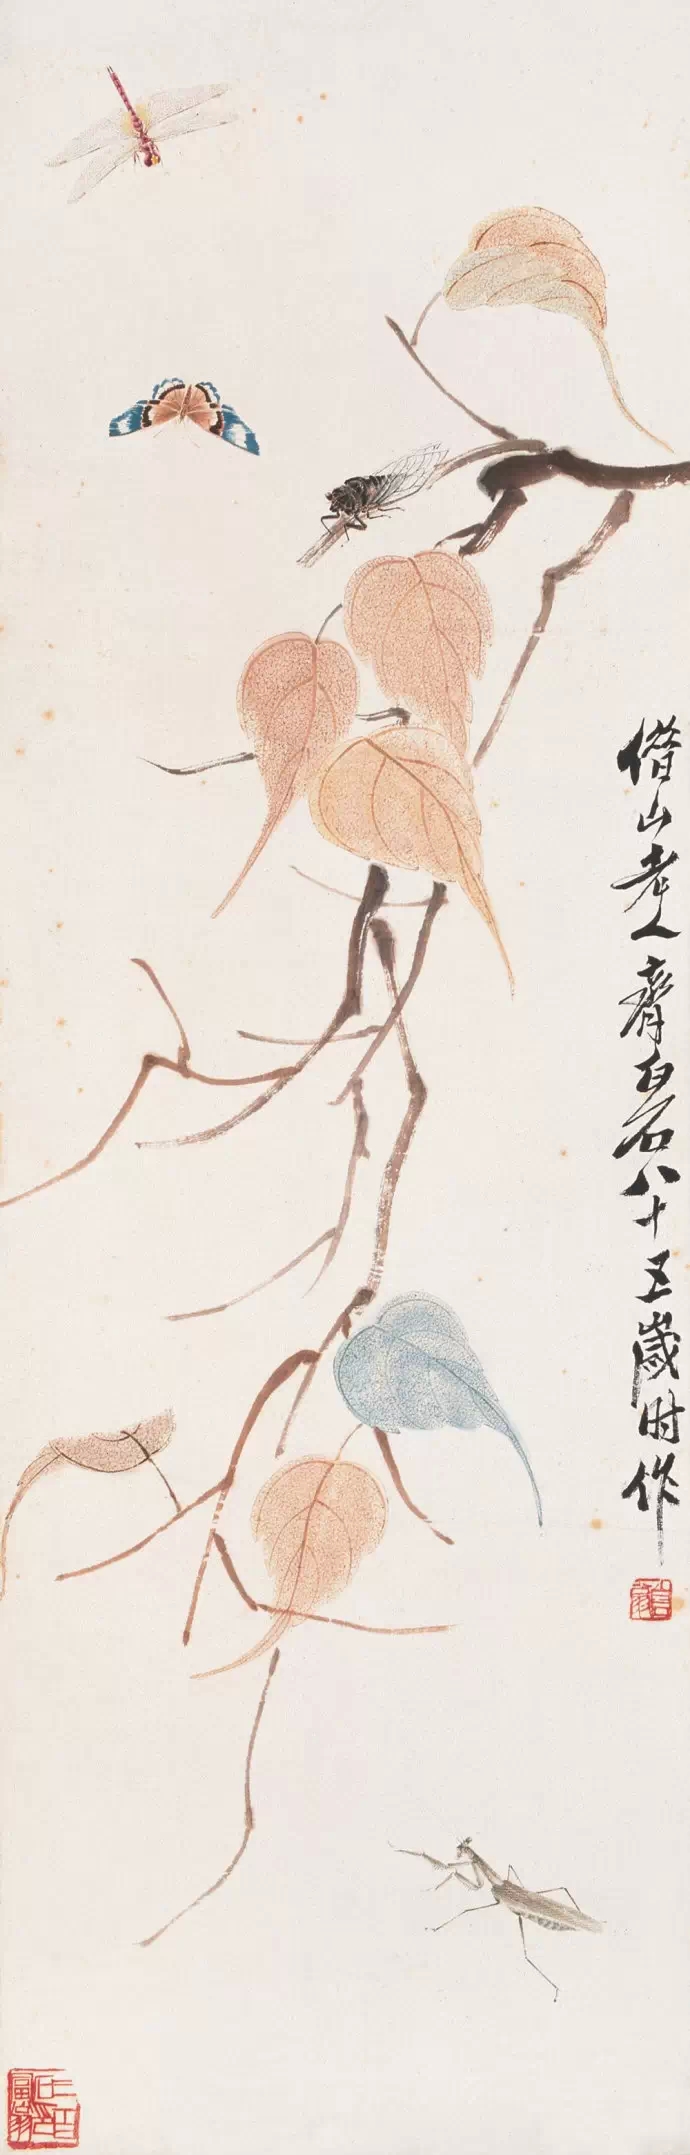 借山老人齊白石八十五歲时作